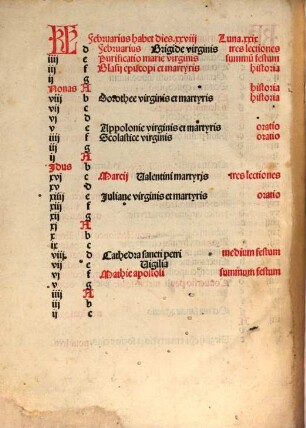 KL Februarius habet dies.xxviij Luna.xxix
d Februarius Brigide virginis tres lectiones
iiij e Purificatio marie virginis summũ festum
iij f Blasij episcopi et martyris historia
ij g
Nonas A historia
viij b Dorothee virginis et martyris historia
vij c
vj d
v e Appolonie virginis et martyris oratio
iiij f Scolastice virginis oratio
iij g
ij A
Idus b
xvj c Marcij Valentini martyris tres lectiones
xv d
xiiij e Juliane virginis et martyris oratio
xiij f
xij g
xj A
x b
ix c
viij. d Cathedra sancti petri medium festum
vij e Vigilia
vj f Mathie apostoli summum festum
v g
iiij A
iij b
ij c